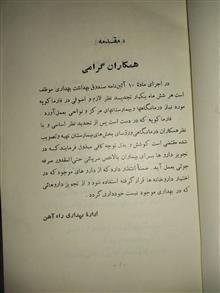 « مقدمه »
همکاران گرامی
در اجرای مادهٔ ۱۰ آئین‌نامه صندوق بهداشت بهداری موظف
است هر شش ماه یکبار تجدید نظر لازم و اصولی در دارو
مورد نیاز درمانگاهها و بیمارستانهای مرکز و نواحی بعمل آورد.
فارماکوپه که در دست است پس از تجدید نظر اساسی و با
نظر همکاران درمانگاهی و رؤسای بخش‌های بیمارستان تهیه و تصویب
شده مقتضی است کوشش و بذل توجه کافی مبذول فرمایند که در
تجویز داروها برای بیماران بالاخص سرپائی حتی‌المقدور صرفه
جوئی بعمل آید. ضمناً انتظار دارد که از دارو های موجود که در
اختیار داروخانه ها قرار گرفته استفاده شود و از تجویز داروهائی
که در بهداری موجود نیست خودداری گردد.
ادارهٔ بهداری راه آهن